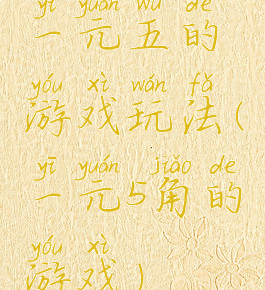 yī yuán wǔ de
一元五的
yóu xì wán fǎ
游戏玩法(
yī yuán jiǎo de
一元5角的
yóu xì
游戏)